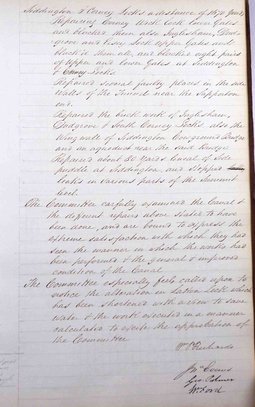 Siddington & Cerney Locks a distance of 1970 Yards
Repaired Cerney Wick Lock lower Gates
and blocked them also Inglesham, Dud-
grove and Eisey Lock Upper Gates and
block'd them and blocked eight pairs
of Upper and lower Gates at Siddington
& Cerney Locks
Repaired several faulty places in the side
walls of the Tunnel near the Sapperton
end.
Repaired the brick work of Inglesham,
Dudgrove & South Cerney Locks also the
Wing walls of
and an aqueduct near the said Bridge
Repaired about 50 Yards lineal of side
puddle at Siddington, and stopped
leaks in various parts of the Summit
level.
The Committee carefully examined the Canal &
the different repairs above stated to have
been done, and are bound to express the
extreme satisfaction with which they have
seen the manner in which the works had
been performed & the general & improved
condition of the Canal
The Committee especially feels called upon to
notice the alteration in Latton Lock which
has been shortened with a view to save
water & the work executed in a manner
calculated to ensure the approbation of
the Committee
Richards
Jn Evans
Geo
Wm Ford